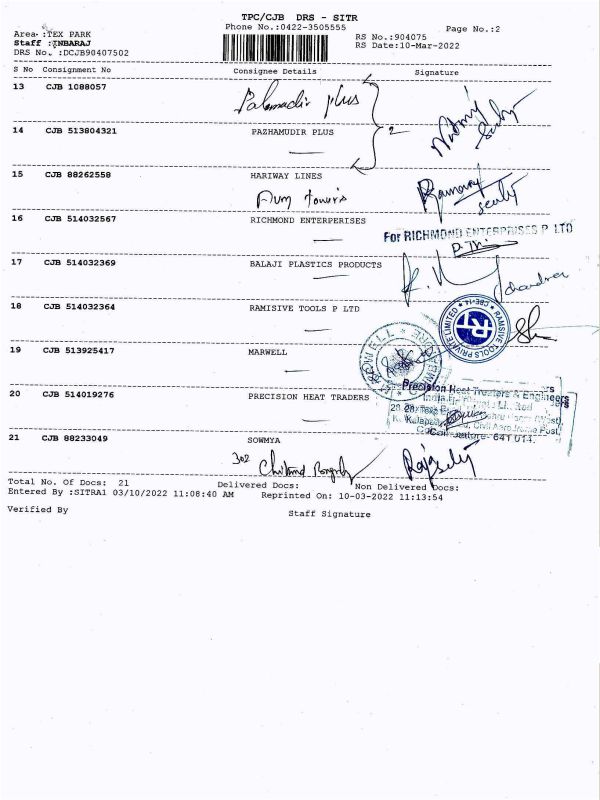 TPC/CJB DRS - SITR
Phone No.:0422-3505555
Page No.:2
Area :TEX PARK
Staff :INBARAJ
DRS No. :DCJB90407502
RS No.:904075
RS Date:10-Mar-2022
S No Consignment No Consignee Details Signature
13 CJB 1088057 Palamudir plus
14 CJB 513804321 PAZHAMUDIR PLUS 2
15 CJB 88262558 HARIWAY LINES
16 CJB 514032567 RICHMOND ENTERPERISES
For RICHMOND ENTERPRISES P LTD
17 CJB 514032369 BALAJI PLASTICS PRODUCTS
chandran
18 CJB 514032364 RAMISIVE TOOLS P LTD
RAMSIVE TOOLS PRIVATE LIMITED
CBE-14
RT
19 CJB 513925417 MARWELL
20 CJB 514019276 PRECISION HEAT TRADERS
Precision Heat Treaters & Engineers
Coimbatore - 641 014.
21 CJB 88233049 SOWMYA
302
Total No. Of Docs: 21 Delivered Docs: Non Delivered Docs:
Entered By :SITRA1 03/10/2022 11:08:40 AM Reprinted On: 10-03-2022 11:13:54
Verified By Staff Signature